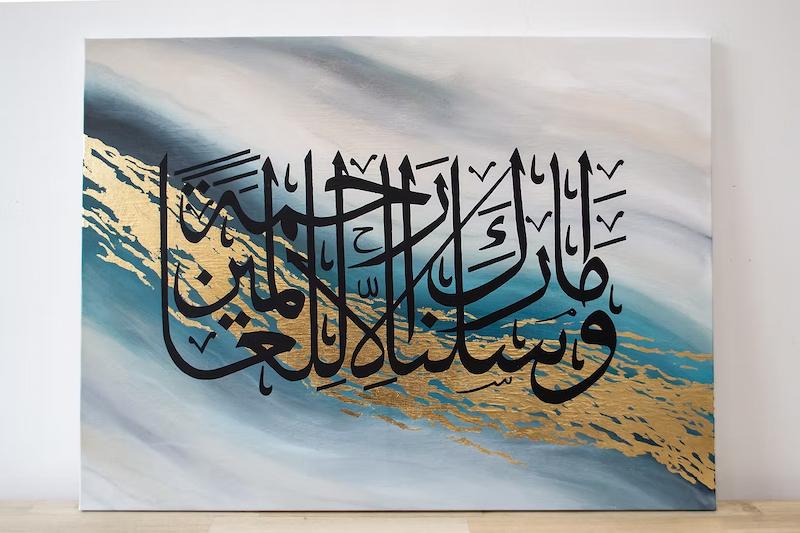 وَمَا ارسلناكَ اِلاّ رحمةً لِلعالمين